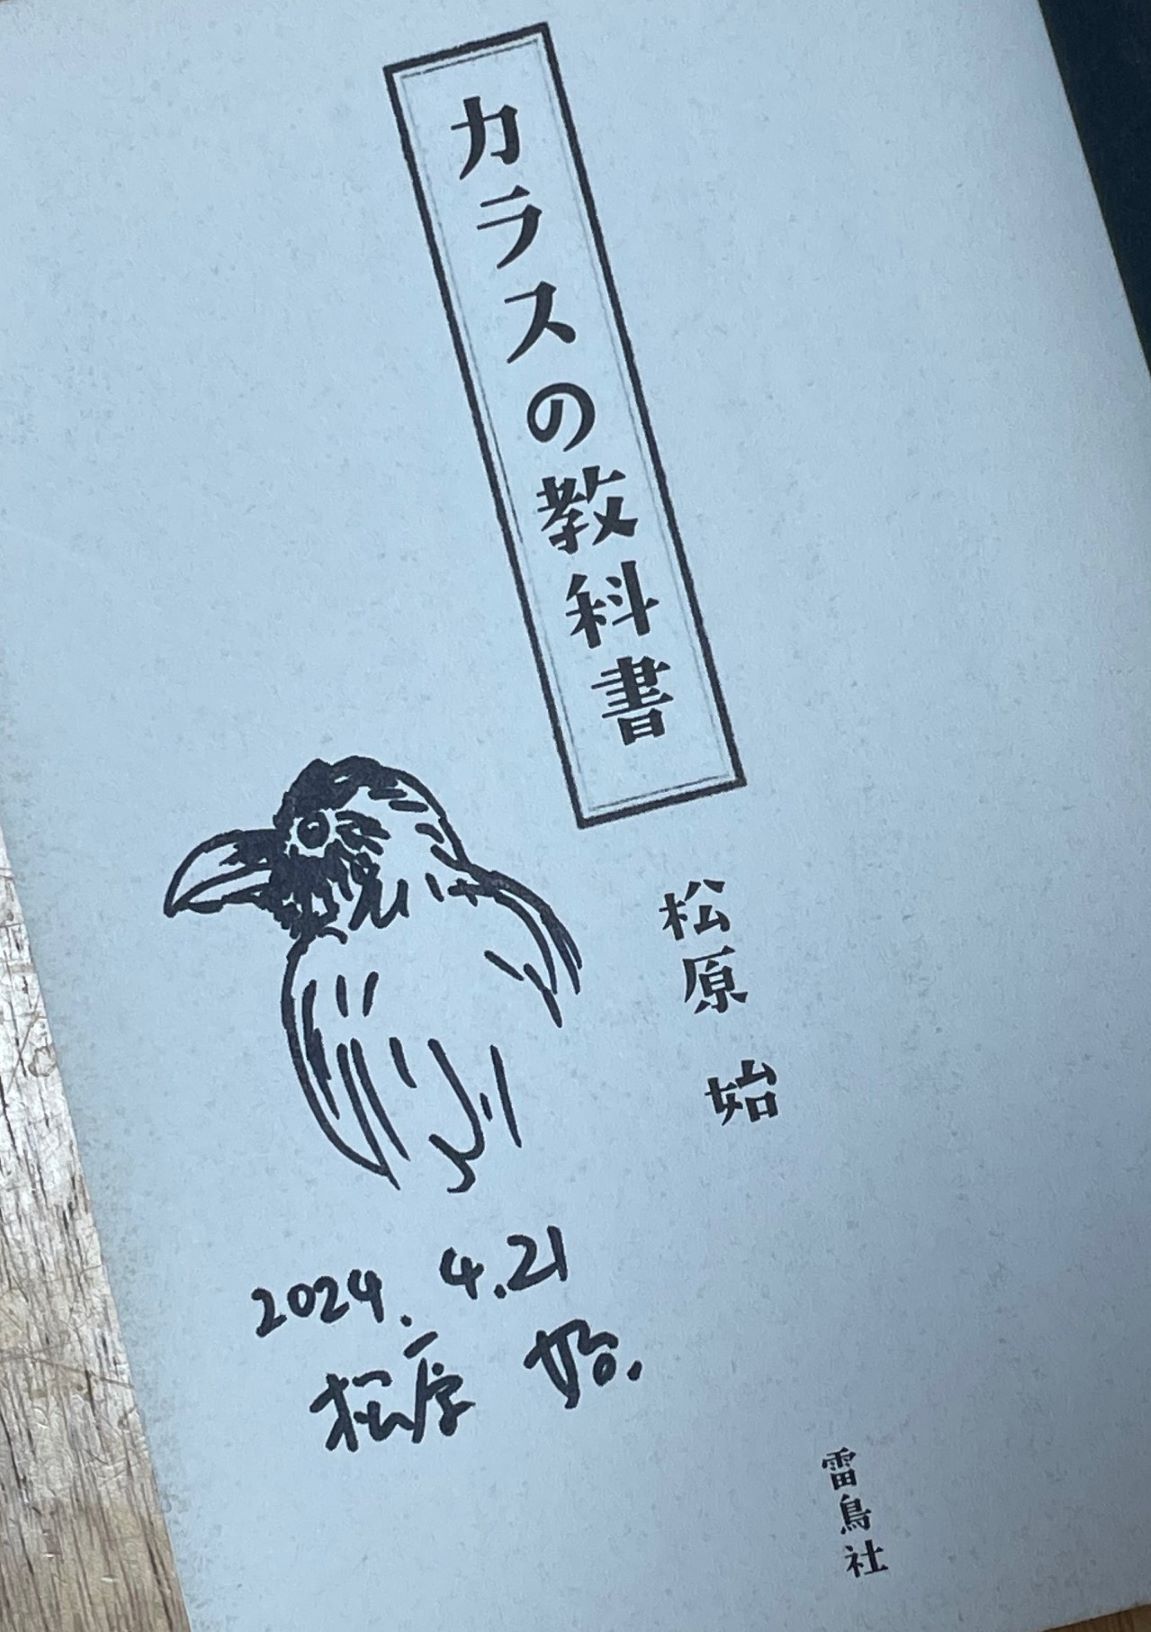 カラスの教科書
松原 始
2024.4.21
松原 始.
雷鳥社